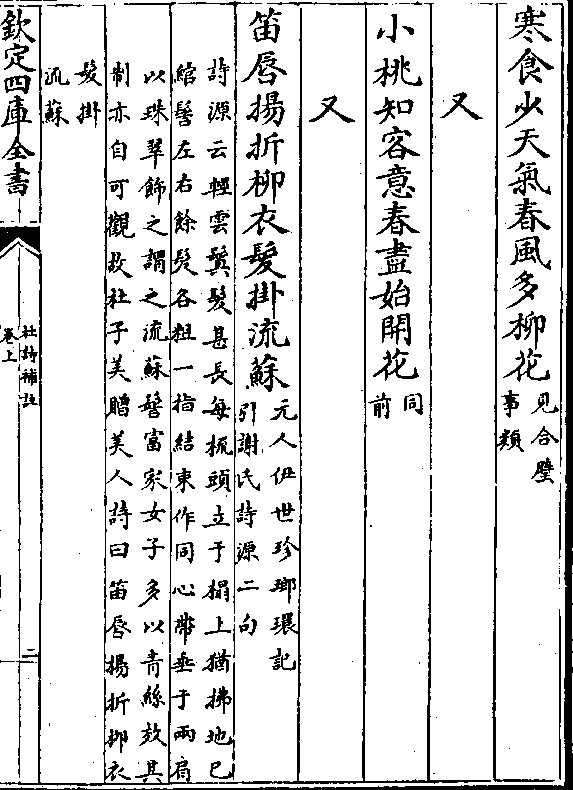 寒食少天氣春風多柳花見合璧事類
又
小桃知客意春盡始開花同前
又
笛唇揚折柳衣髮掛流蘇元人伊世珍瑯環記引謝氏詩源二句
詩源云輕雲鬒髮甚長每梳頭立于榻上猶拂地已
綰髻左右餘髮各粗一指結束作同心帶垂于兩肩
以珠翠飾之謂之流蘇髻富家女子多以青絲效其
制亦自可觀故杜子美贈美人詩曰笛唇揚折柳衣
髮掛流蘇
欽定四庫全書
杜詩補註
卷上
二